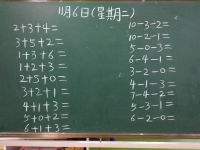 11月6日(星期二)
2+3+4=
3+5+2=
1+3+6=
1+2+3=
2+5+0=
3+2+1=
4+1+3=
5+0+2=
6+1+3=
10-3-2=
10-2-1=
5-0-3=
6-4-1=
3-2-0=
4-1-3=
7-4-2=
5-3-1=
6-2-0=